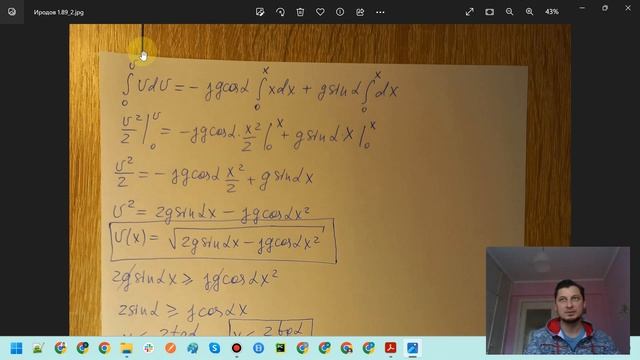 Иродов 1.89_2.jpg
43%
∫₀^υ υdυ = − γgcosα ∫₀^x xdx + gsinα ∫₀^x dx
υ²/2 |₀^υ = − γgcosα · x²/2 |₀^x + gsinα x |₀^x
υ²/2 = − γgcosα x²/2 + gsinαx
υ² = 2gsinαx − γgcosαx²
υ(x) = √(2gsinαx − γgcosαx²)
2gsinαx ⩾ γgcosαx²
2sinα ⩾ γcosαx